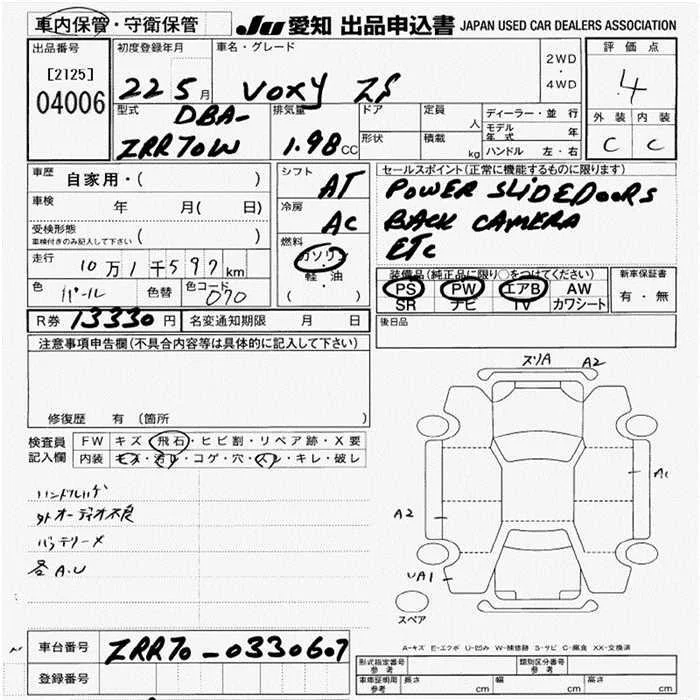 車内保管・守衛保管
JU 愛知 出品申込書 JAPAN USED CAR DEALERS ASSOCIATION
出品番号 初度登録年月 車名・グレード 評価点
[2125]
04006
22 5月 VOXY ZS 2WD・4WD 4
型式 DBA- 排気量 ドア 定員 人 ディーラー・並行 外装 内装
ZRR70W 1.98CC 形状 積載 kg モデル年式 年 C C
ハンドル 左・右
車歴 自家用・( ) シフト AT セールスポイント(正常に機能するものに限ります)
車検 年 月( 日) 冷房 AC POWER SLIDEDOORS
受検形態 ( ) BACK CAMERA
車検付きのみ記入して下さい
燃料 ガソリン・軽油 ( ) ETC
走行 10万1千597km 装備品(純正品に限り○をつけてください) 新車保証書
色 パール 色替 色コード 070 PS PW エアB AW 有・無
SR ナビ TV カワシート
R券 13330円 名変通知期限 月 日 後日品
注意事項申告欄(不具合内容等は具体的に記入して下さい)
スリA A2
修復歴 有 (箇所
検査員記入欄 FW キズ・飛石・ヒビ割・リペア跡・X要
内装 キズ・汚レ・コゲ・穴・スレ・キレ・破レ
ハンドルハゲ A1
外オーディオ不良 A2
バッテリーメ
各A.U UA1
スペア
A-キズ E-エクボ U-凹み W-補修跡 S-サビ C-腐食 XX-交換済
車台番号 ZRR70-0330607 型式指定番号 参考 類別区分番号 参考
登録番号 車庫証明用 参考 長さ cm 幅 cm 高さ cm